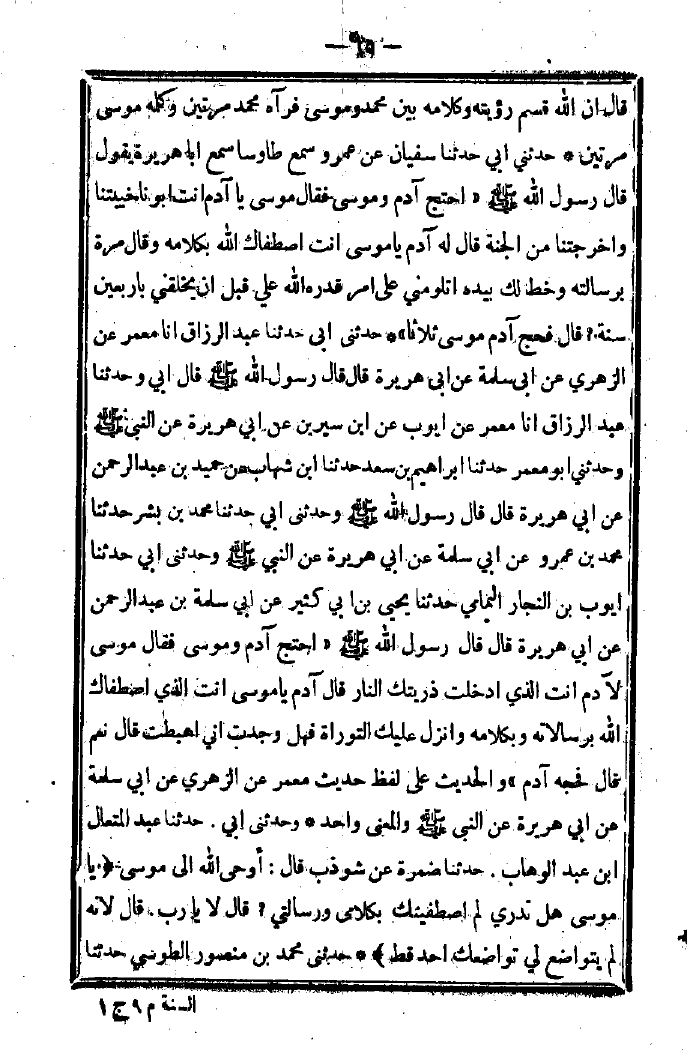 — ٦٥ —
قال ان الله قسم رؤيته وكلامه بين محمد وموسى فرآه محمد مرتين وكلمه موسى
مرتين * حدثني ابي حدثنا سفيان عن عمرو سمع طاوسا سمع ابا هريرة يقول
قال رسول الله ﷺ « احتج آدم وموسى فقال موسى يا آدم انت ابونا خيبتنا
واخرجتنا من الجنة قال له آدم ياموسى انت اصطفاك الله بكلامه وقال مرة
برسالته وخط لك بيده اتلومني على امر قدره الله علي قبل ان يخلقني باربعين
سنة ? قال فحج آدم موسى ثلاثا» * حدثني ابي حدثنا عبد الرزاق انا معمر عن
الزهري عن ابي سلمة عن ابي هريرة قال قال رسول الله ﷺ قال ابي وحدثنا
عبد الرزاق انا معمر عن ايوب عن ابن سيرين عن ابي هريرة عن النبي ﷺ
وحدثني ابو معمر حدثنا ابراهيم بن سعد حدثنا ابن شهاب عن حميد بن عبد الرحمن
عن ابي هريرة قال قال رسول الله ﷺ وحدثني ابي حدثنا محمد بن بشر حدثنا
محمد بن عمرو عن ابي سلمة عن ابي هريرة عن النبي ﷺ وحدثني ابي حدثنا
ايوب بن النجار اليمامي حدثنا يحيى بن ابي كثير عن ابي سلمة بن عبد الرحمن
عن ابي هريرة قال قال رسول الله ﷺ « احتج آدم وموسى فقال موسى
لآدم انت الذي ادخلت ذريتك النار قال آدم ياموسى انت الذي اصطفاك
الله برسالاته وبكلامه وانزل عليك التوراة فهل وجدت اني اهبطت قال نعم
قال فحجه آدم » والحديث على لفظ حديث معمر عن الزهري عن ابي سلمة
عن ابي هريرة عن النبي ﷺ والمعنى واحد * وحدثني ابي . حدثنا عبد المتعال
ابن عبد الوهاب . حدثنا ضمرة عن شوذب قال : أوحى الله الى موسى ﴿ يا
موسى هل تدري لم اصطفيتك بكلامي ورسالتي ? قال لا يارب . قال لانه
لم يتواضع لي تواضعك احد قط ﴾ * حدثني محمد بن منصور الطوسي حدثنا
السنة م ٩ ج ١